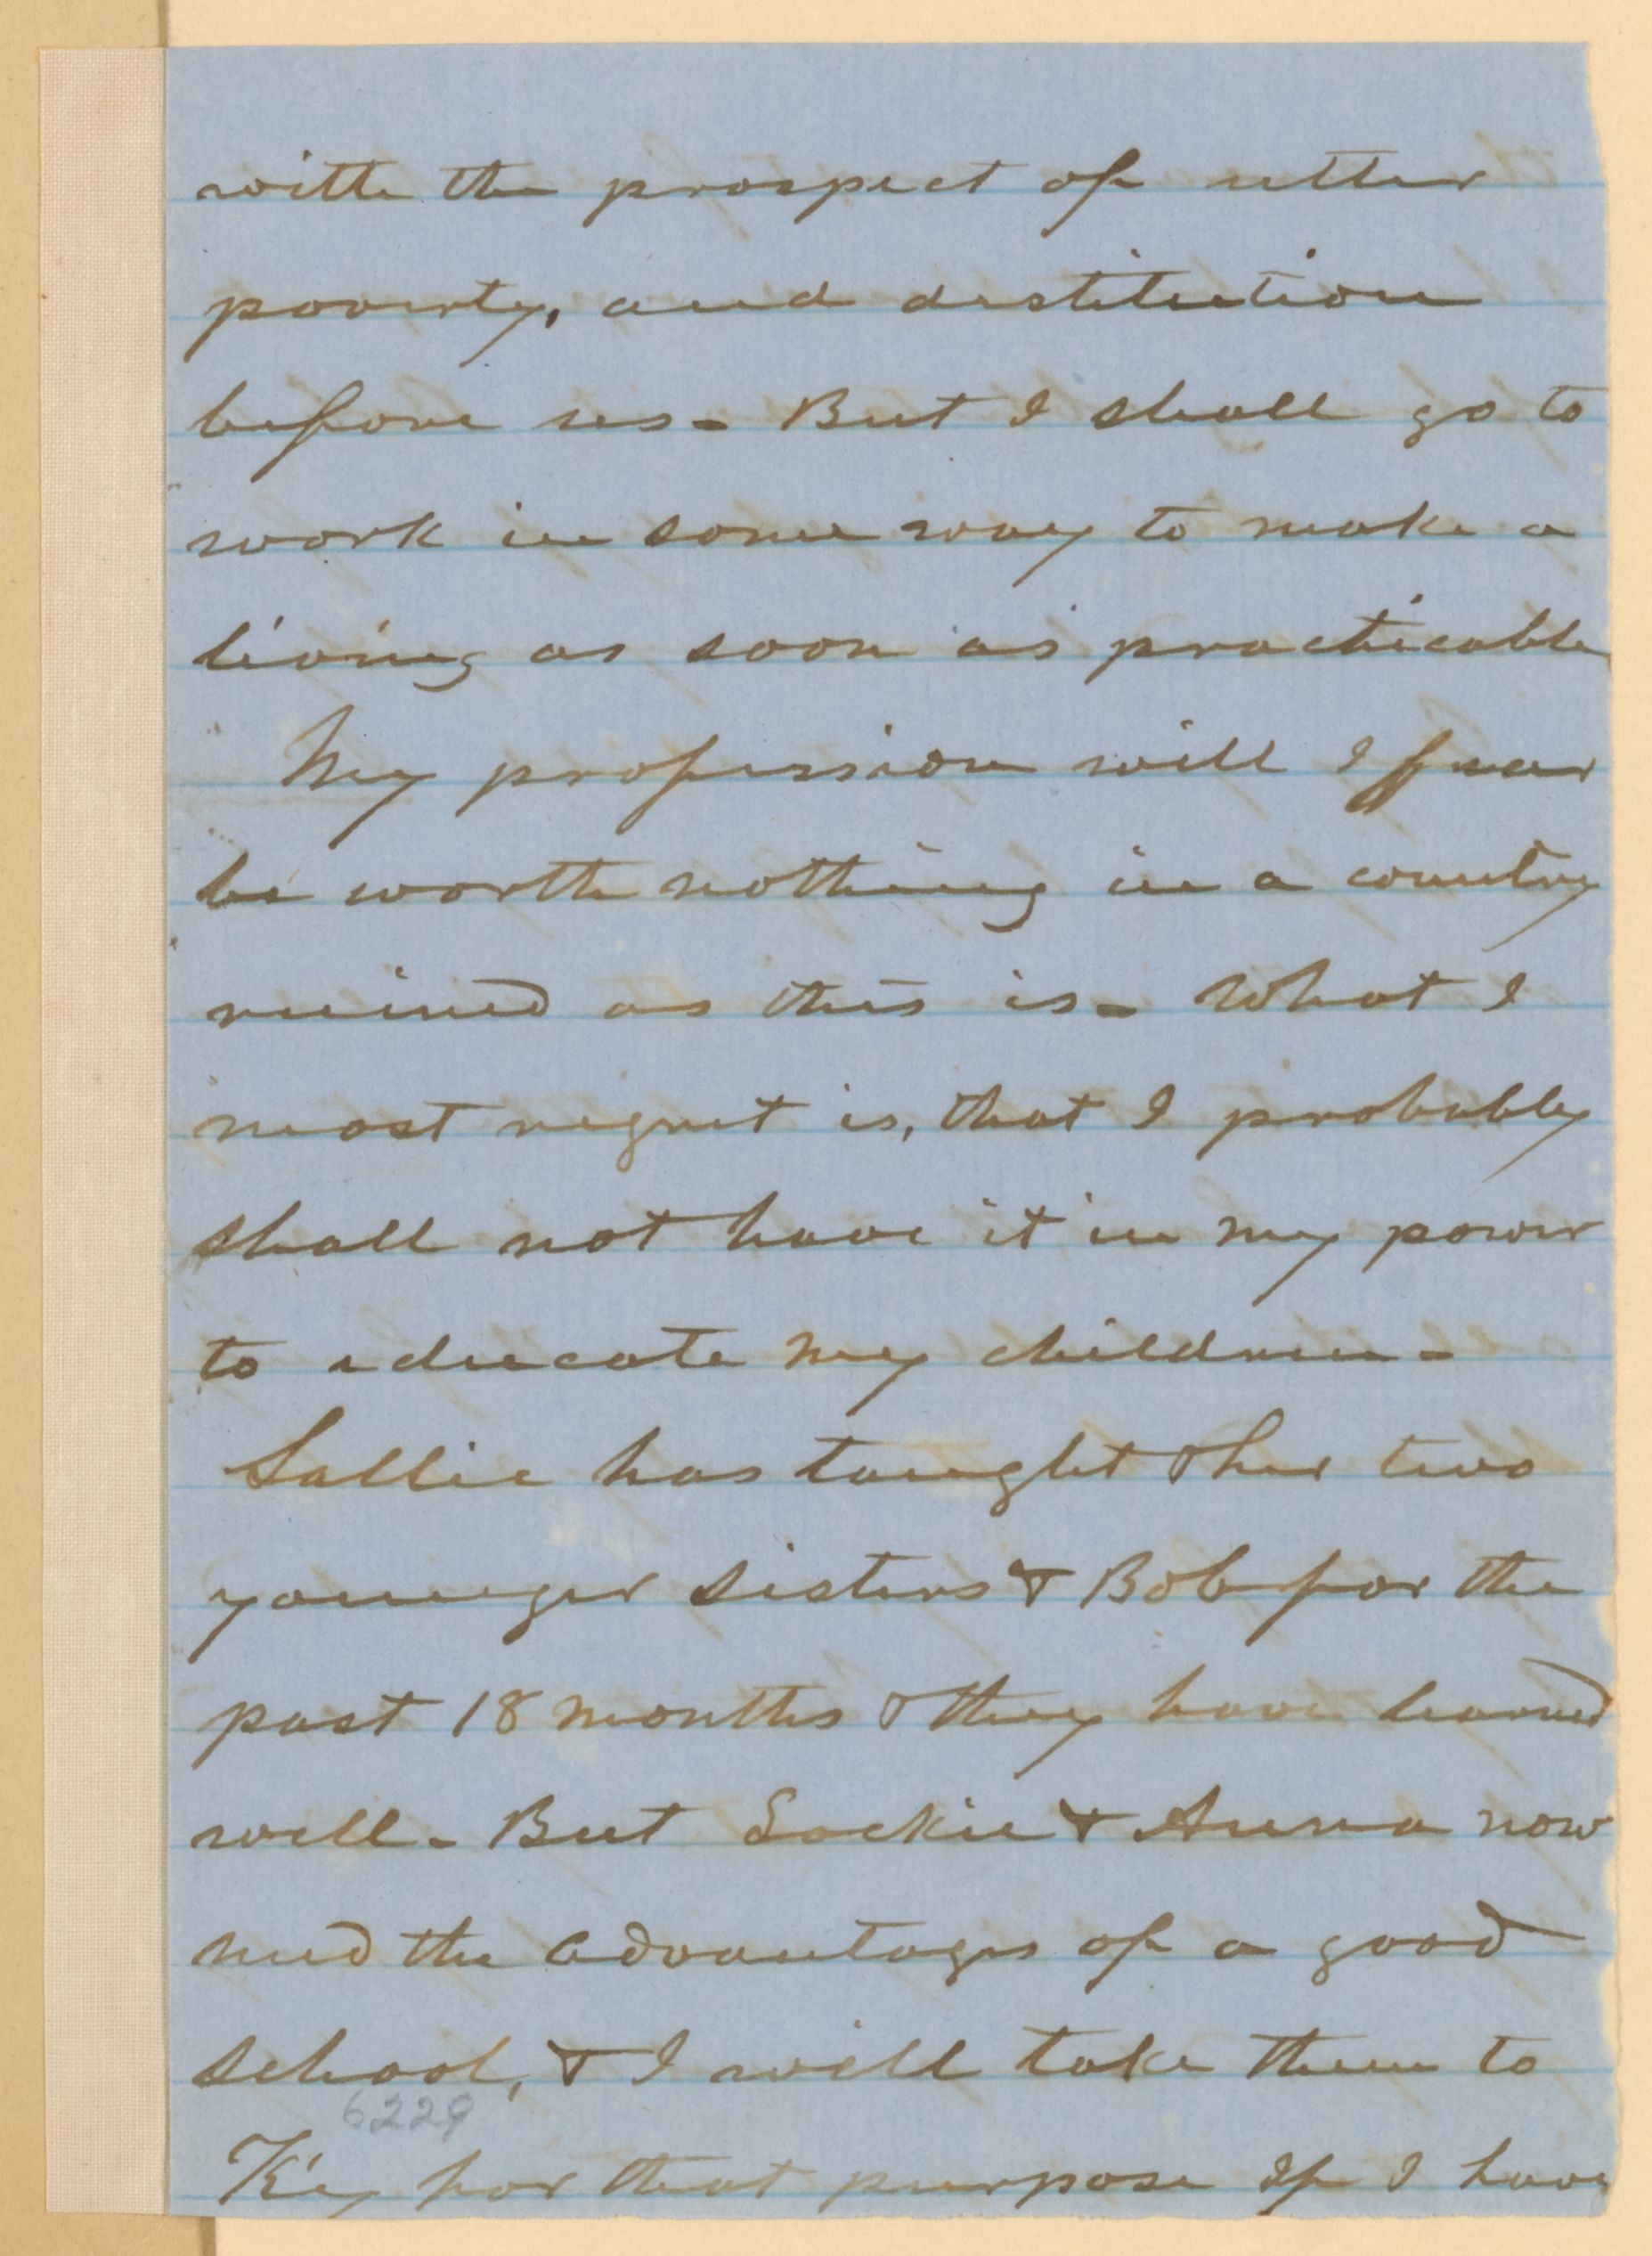 with the prospect of utter
poverty, and destitution
before us - But I shall go to
work in some way to make a
living as soon as practicable
My profession will I fear
be worth nothing in a country
ruined as this is - What I
most regret is, that I probably
shall not have it in my power
to educate my children -
Sallie has taught her two
younger sisters & Bob for the
past 18 months & they have learned
well - But Sackie & Anna now
need the advantages of a good
school, & I will take them to
6229
Ky for that purpose If I have